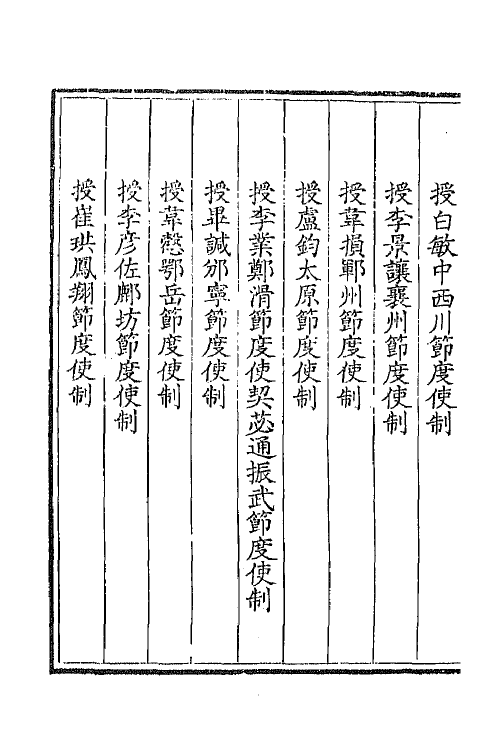 授白敏中西川節度使制
授李景讓襄州節度使制
授韋損鄆州節度使制
授盧鈞太原節度使制
授李業鄭滑節度使契苾通振武節度使制
授畢諴邠寧節度使制
授韋慤鄂岳節度使制
授李彦佐鄜坊節度使制
授崔珙鳳翔節度使制